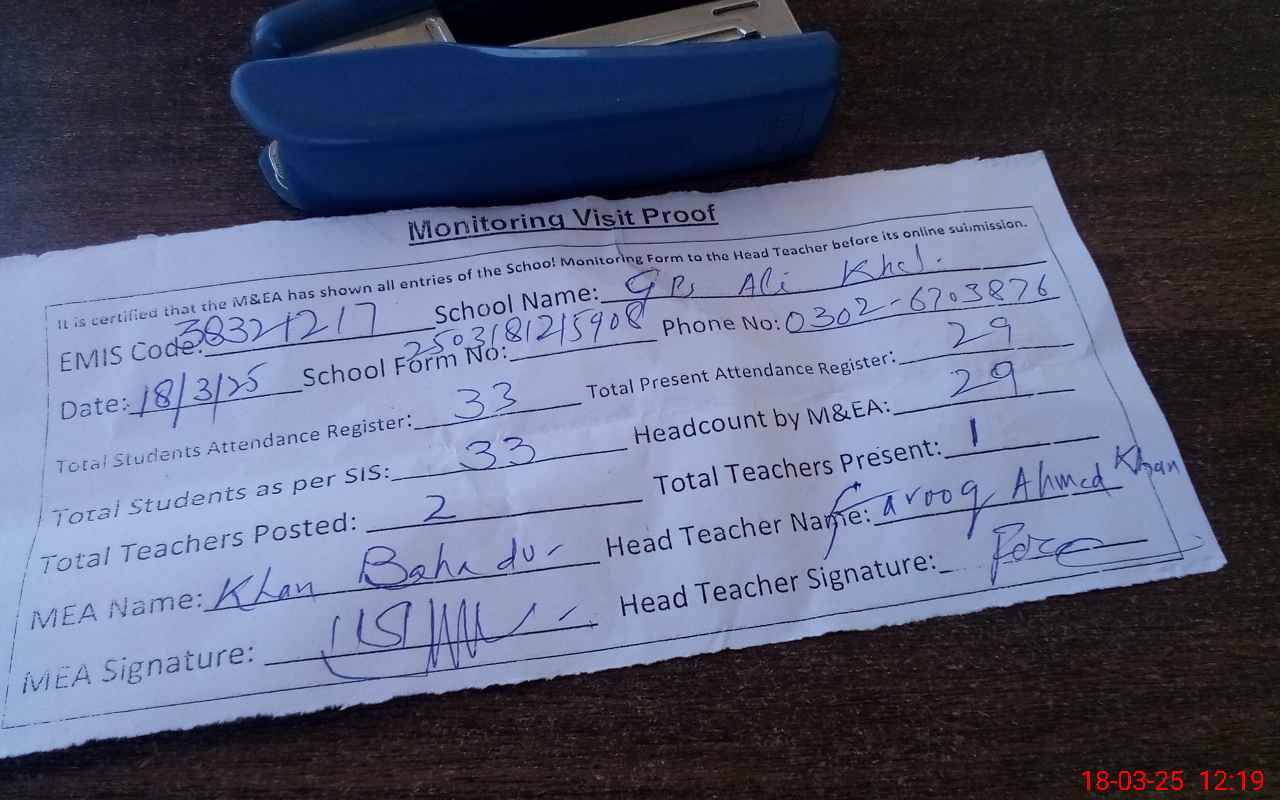 Monitoring Visit Proof
It is certified that the M&EA has shown all entries of the School Monitoring Form to the Head Teacher before its online submission.
EMIS Code: 38321217 School Name: GPS Ali Khel.
Date: 18/3/25 School Form No: 2503181215908 Phone No: 0302-6703876
Total Students Attendance Register: 33 Total Present Attendance Register: 29
Total Students as per SIS: 33 Headcount by M&EA: 29
Total Teachers Posted: 2 Total Teachers Present: 1
MEA Name: Khan Bahadur Head Teacher Name: Farooq Ahmed Khan
MEA Signature: Head Teacher Signature:
18-03-25 12:19